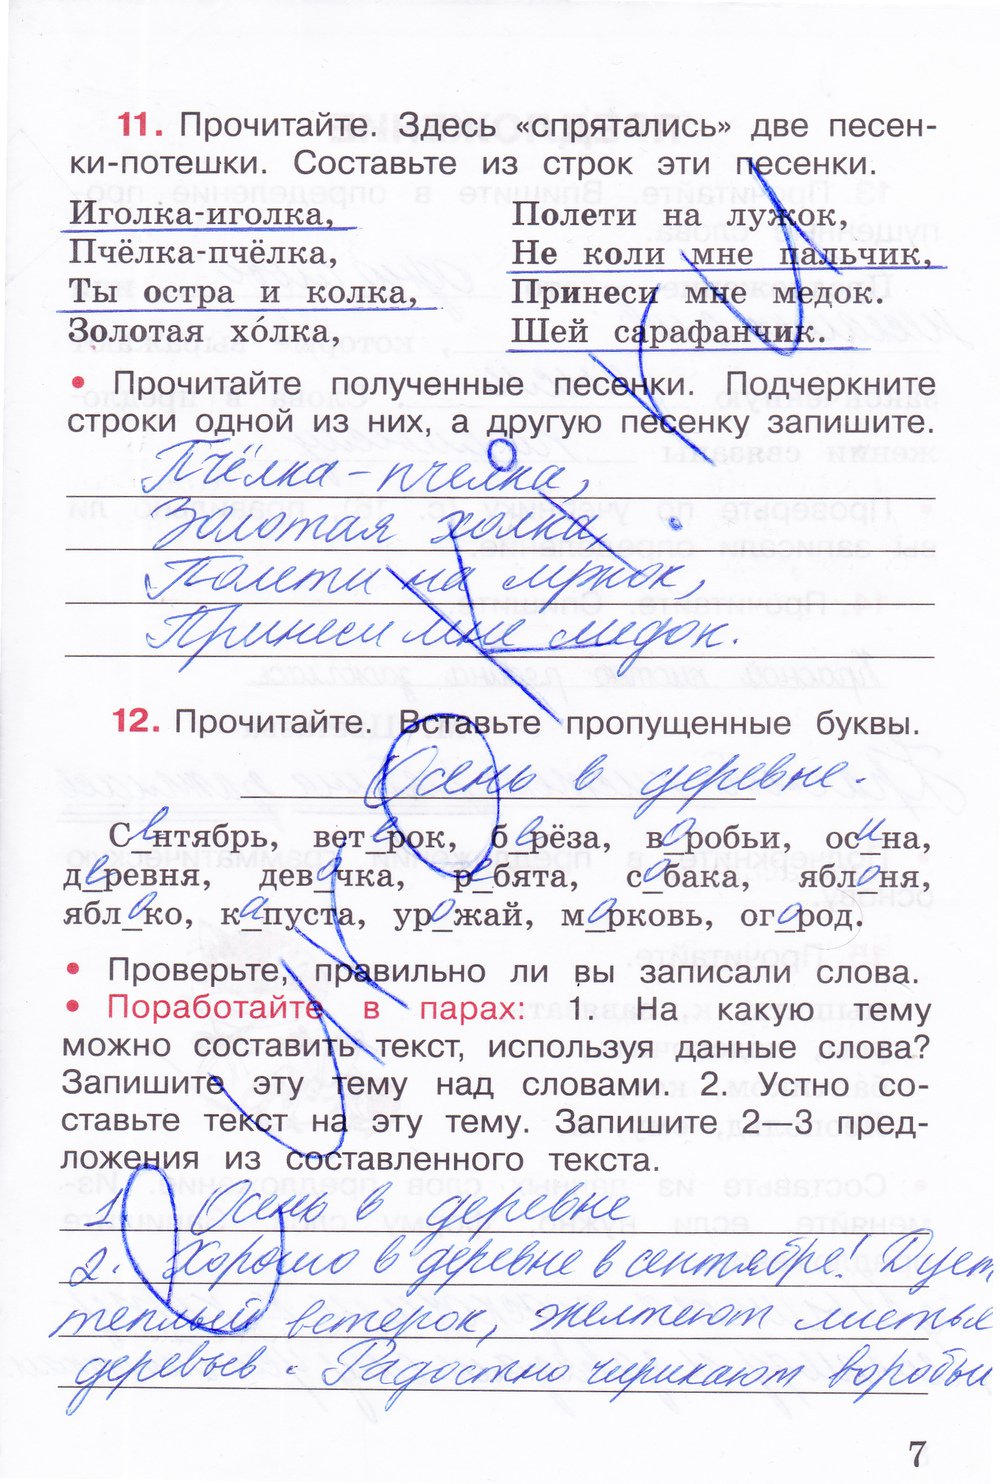 11. Прочитайте. Здесь «спрятались» две песен-
ки-потешки. Составьте из строк эти песенки.
Иголка-иголка, Полети на лужок,
Пчёлка-пчёлка, Не коли мне пальчик,
Ты остра и колка, Принеси мне медок.
Золотая хо́лка, Шей сарафанчик.
• Прочитайте полученные песенки. Подчеркните
строки одной из них, а другую песенку запишите.
Пчёлка-пчелка,
Золотая холка,
Полети на лужок,
Принеси мне медок.
12. Прочитайте. Вставьте пропущенные буквы.
Осень в деревне.
Сентябрь, ветерок, берёза, воробьи, осина,
деревня, девочка, ребята, собака, яблоня,
яблоко, капуста, урожай, морковь, огород.
• Проверьте, правильно ли вы записали слова.
• Поработайте в парах: 1. На какую тему
можно составить текст, используя данные слова?
Запишите эту тему над словами. 2. Устно со-
ставьте текст на эту тему. Запишите 2—3 пред-
ложения из составленного текста.
1. Осень в деревне
2. Хорошо в деревне в сентябре! Дует
теплый ветерок, желтеют листья
деревьев. Радостно чирикают воробьи
7